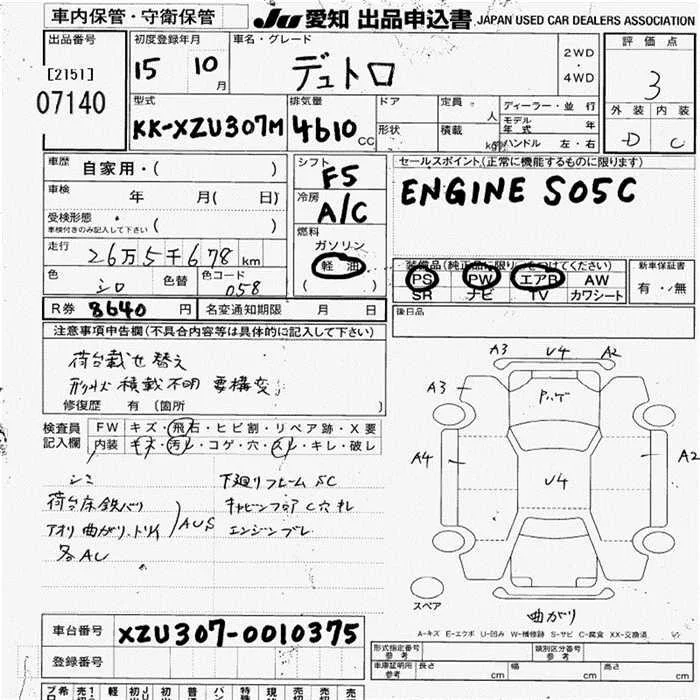 車内保管・守衛保管
JU 愛知 出品申込書 JAPAN USED CAR DEALERS ASSOCIATION
出品番号
[2151]
07140
初度登録年月
15 10 月
車名・グレード
デュトロ
2WD
・
4WD
評価点
3
外装 内装
D C
型式
KK-XZU307M
排気量
4610 cc
ドア
形状
定員 人
積載 kg
ディーラー・並行
モデル年式 年
ハンドル 左・右
車歴 自家用・( )
車検 年 月( 日)
受検形態
車検付きのみ記入して下さい ( )
走行 26万5千678 km
色 シロ 色替 色コード 058
R券 8640 円 名変通知期限 月 日
シフト
F5
冷房
A/C
燃料
ガソリン
軽油
( )
セールスポイント(正常に機能するものに限ります)
ENGINE S05C
装備品(純正品に限り○をつけてください)
PS PW エアB AW
SR ナビ TV カワシート
新車保証書
有・無
後日品
注意事項申告欄(不具合内容等は具体的に記入して下さい)
荷台載せ替え
形状積載不明 要構変
修復歴 有 (箇所 )
検査員記入欄
FW キズ・飛石・ヒビ割・リペア跡・X要
内装 キズ・汚レ・コゲ・穴・スレ・キレ・破レ
シミ
荷台床鉄バリ
アオリ曲がり、トリイ
各AU
AUS
下廻りフレームSC
キャビンフロアC穴
エンジンブレ
A3 U4 A2
A3
A4
U4
A2
曲がり
スペア
A-キズ E-エクボ U-凹み W-補修跡 S-サビ C-腐食 XX-交換済
車台番号 XZU307-0010375
登録番号
形式指定番号
参考
類別区分番号
参考
車庫証明用
参考
長さ cm 幅 cm 高さ cm